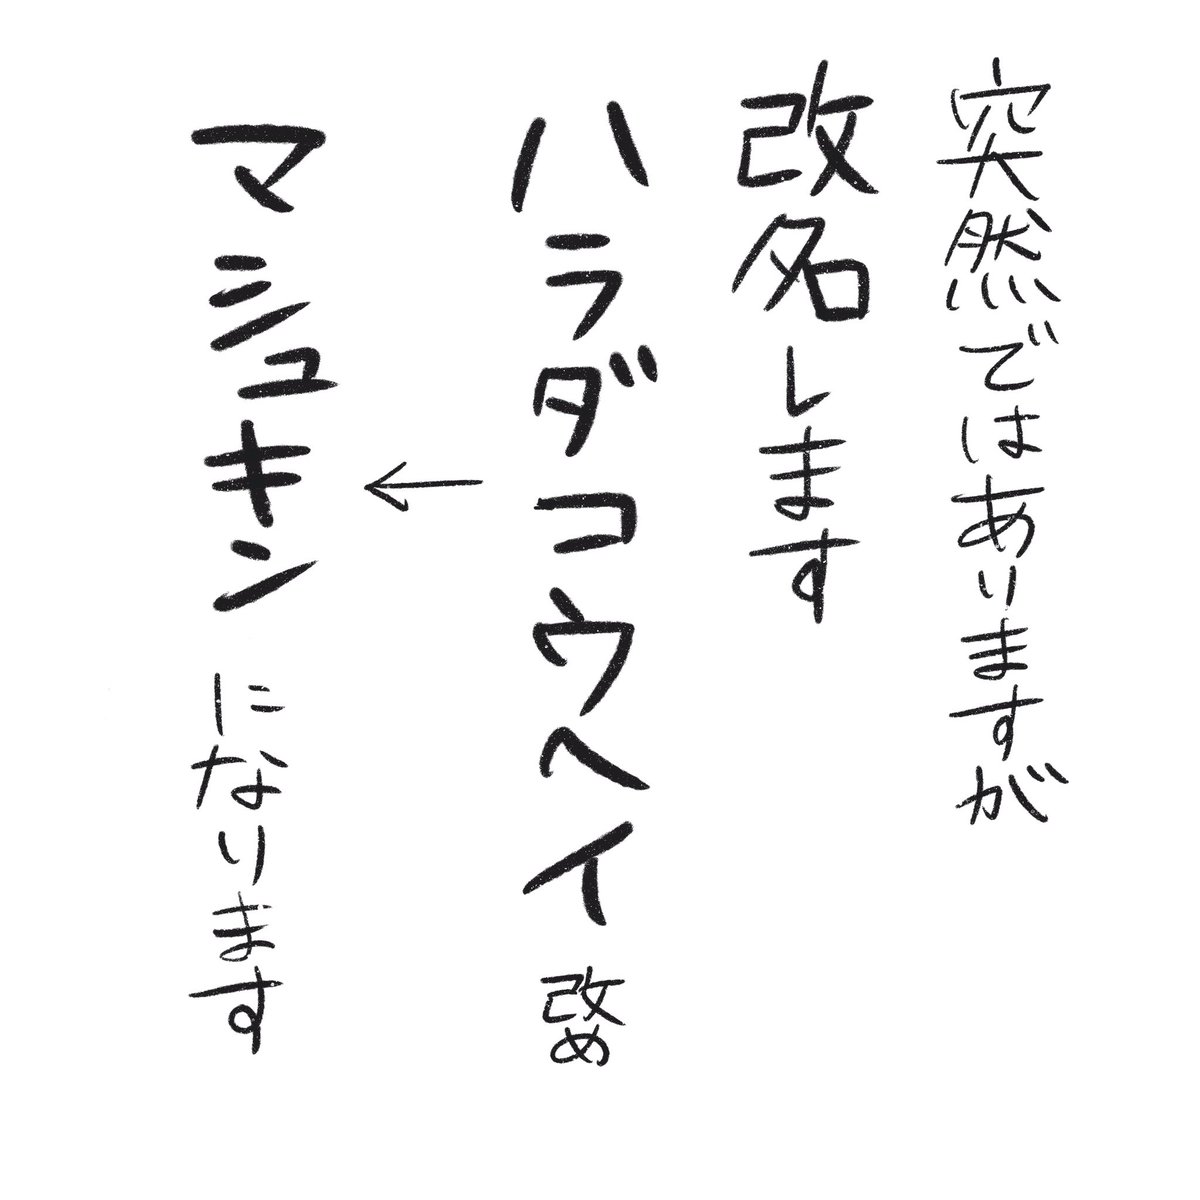 突然ではありますが
改名します
ハラダコウヘイ改め
←
マシュキンになります